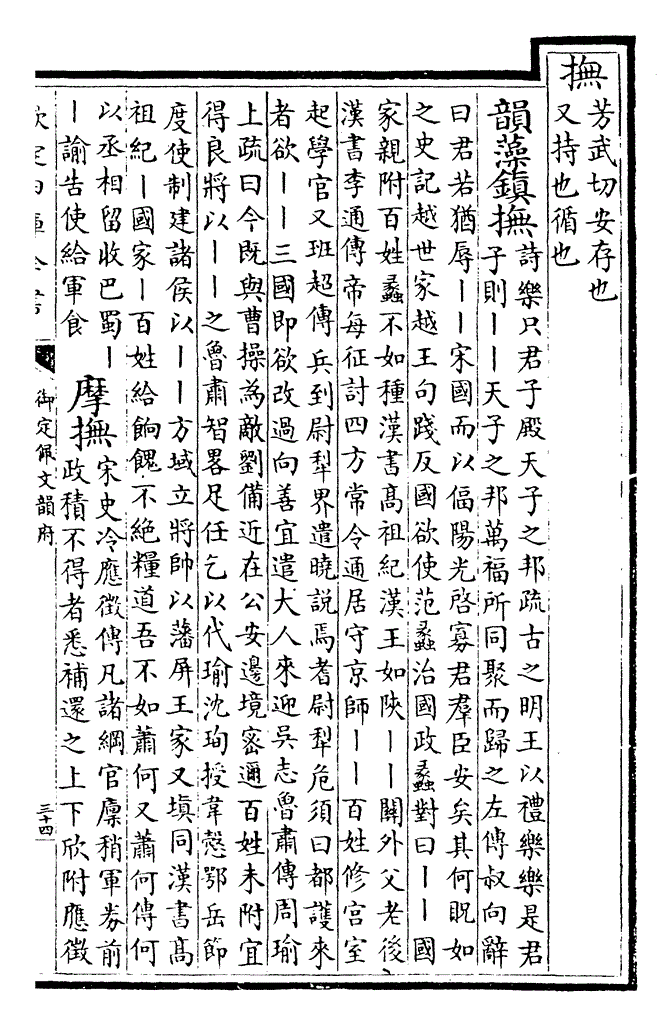 撫
芳武切安存也
又持也循也
韻藻鎮撫
詩樂只君子殿天子之邦疏古之明王以禮樂樂是君
子則丨丨天子之邦萬福所同聚而歸之左傳叔向辭
曰君若猶辱丨丨宋國而以偪陽光啓寡君羣臣安矣其何貺如
之史記越世家越王句踐反國欲使范蠡治國政蠡對曰丨丨國
家親附百姓蠡不如種漢書髙祖紀漢王如陝丨丨關外父老後
漢書李通傳帝每征討四方常令通居守京師丨丨百姓修宫室
起學官又班超傳兵到尉犁界遣曉説焉耆尉犁危須曰都護來
者欲丨丨三國即欲改過向善宜遣大人來迎吳志魯肅傳周瑜
上疏曰今既與曹操為敵劉備近在公安邊境密邇百姓未附宜
得良將以丨丨之魯肅智畧足任乞以代瑜沈珣授韋慤鄂岳節
度使制建諸侯以丨丨方域立將帥以藩屏王家又塡同漢書髙
祖紀丨國家丨百姓給餉餽不絶糧道吾不如蕭何又蕭何傳何
以丞相留收巴蜀丨
丨諭告使給軍食
摩撫
宋史冷應徵傳凡諸綱官廪稍軍劵前
政積不得者悉補還之上下欣附應徵
御定佩文韻府
三十四